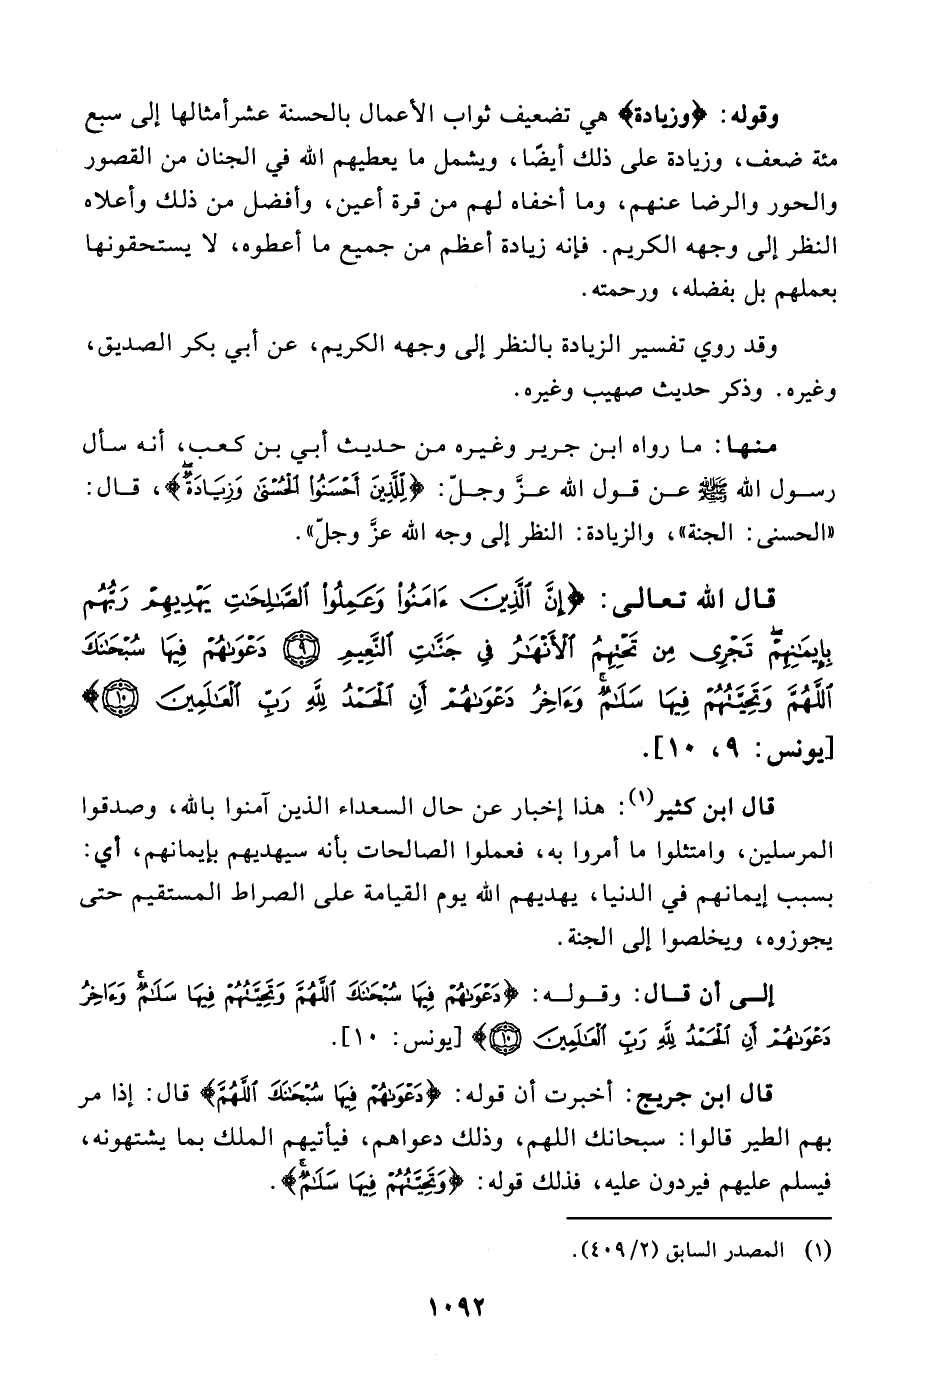 وقوله: ﴿وزيادة﴾ هي تضعيف ثواب الأعمال بالحسنة عشرأمثالها إلى سبع
مئة ضعف، وزيادة على ذلك أيضًا، ويشمل ما يعطيهم الله في الجنان من القصور
والحور والرضا عنهم، وما أخفاه لهم من قرة أعين، وأفضل من ذلك وأعلاه
النظر إلى وجهه الكريم. فإنه زيادة أعظم من جميع ما أعطوه، لا يستحقونها
بعملهم بل بفضله، ورحمته.
وقد روي تفسير الزيادة بالنظر إلى وجهه الكريم، عن أبي بكر الصديق،
وغيره. وذكر حديث صهيب وغيره.
منها: ما رواه ابن جرير وغيره من حديث أبي بن كعب، أنه سأل
رسول الله ﷺ عن قول الله عزَّ وجلّ: ﴿لِّلَّذِينَ أَحْسَنُوا۟ ٱلْحُسْنَىٰ وَزِيَادَةٌۖ﴾، قال:
«الحسنى: الجنة»، والزيادة: النظر إلى وجه الله عزَّ وجلّ».
قال الله تعالى: ﴿إِنَّ ٱلَّذِينَ ءَامَنُوا۟ وَعَمِلُوا۟ ٱلصَّـٰلِحَـٰتِ يَهْدِيهِمْ رَبُّهُم
بِإِيمَـٰنِهِمْۖ تَجْرِى مِن تَحْتِهِمُ ٱلْأَنْهَـٰرُ فِى جَنَّـٰتِ ٱلنَّعِيمِ ۝٩ دَعْوَىٰهُمْ فِيهَا سُبْحَـٰنَكَ
ٱللَّهُمَّ وَتَحِيَّتُهُمْ فِيهَا سَلَـٰمٌۚ وَءَاخِرُ دَعْوَىٰهُمْ أَنِ ٱلْحَمْدُ لِلَّهِ رَبِّ ٱلْعَـٰلَمِينَ ۝١٠﴾
[يونس: ٩، ١٠].
قال ابن كثير(١): هذا إخبار عن حال السعداء الذين آمنوا بالله، وصدقوا
المرسلين، وامتثلوا ما أمروا به، فعملوا الصالحات بأنه سيهديهم بإيمانهم، أي:
بسبب إيمانهم في الدنيا، يهديهم الله يوم القيامة على الصراط المستقيم حتى
يجوزوه، ويخلصوا إلى الجنة.
إلى أن قال: وقوله: ﴿دَعْوَىٰهُمْ فِيهَا سُبْحَـٰنَكَ ٱللَّهُمَّ وَتَحِيَّتُهُمْ فِيهَا سَلَـٰمٌۚ وَءَاخِرُ
دَعْوَىٰهُمْ أَنِ ٱلْحَمْدُ لِلَّهِ رَبِّ ٱلْعَـٰلَمِينَ ۝١٠﴾ [يونس: ١٠].
قال ابن جريج: أخبرت أن قوله: ﴿دَعْوَىٰهُمْ فِيهَا سُبْحَـٰنَكَ ٱللَّهُمَّ﴾ قال: إذا مر
بهم الطير قالوا: سبحانك اللهم، وذلك دعواهم، فيأتيهم الملك بما يشتهونه،
فيسلم عليهم فيردون عليه، فذلك قوله: ﴿وَتَحِيَّتُهُمْ فِيهَا سَلَـٰمٌۚ﴾.
(١) المصدر السابق (٤٠٩/٢).
١٠٩٢